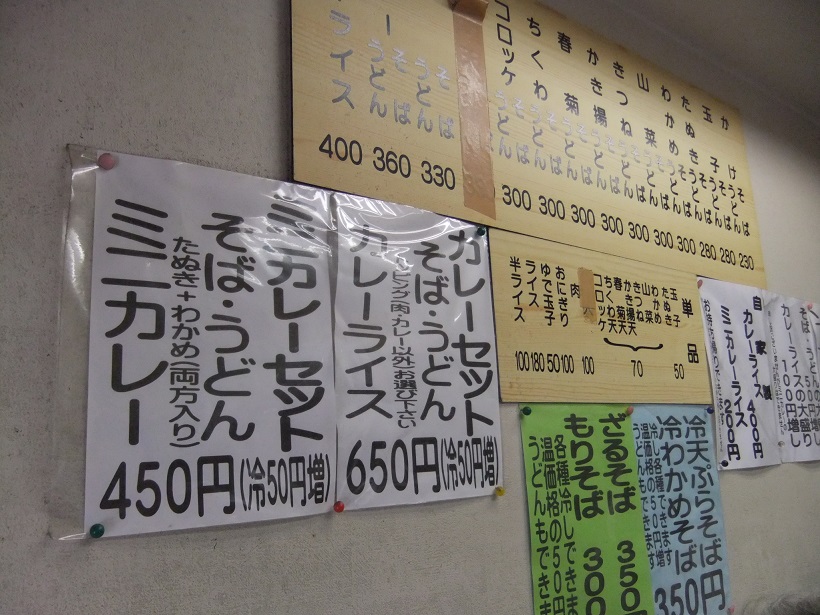 かけそば 230
うどん
玉子そば 280
うどん
たぬきそば 280
うどん
わかめそば 300
うどん
山菜そば 300
うどん
きつねそば 300
うどん
かき揚そば 300
うどん
春菊そば 300
うどん
ちくわそば 300
うどん
コロッケそば 300
うどん
そば 330
うどん
そば 360
うどん
ーライス 400
単品
玉子 50
たぬき
わかめ
山菜
きつね
かき揚天
春菊天
ちくわ天
コロッケ
70
肉 100
おにぎり 100
ゆで玉子 50
ライス 180
半ライス 100
カレーセット
そば・うどん
(トッピング肉・カレー以外)お選び下さい
カレーライス
650円(冷50円増)
ミニカレーセット
そば・うどん
たぬき+わかめ(両方入り)
ミニカレー
450円(冷50円増)
自家製
カレーライス 400円
ミニカレーライス 200円
そば・うどんの大盛り
50円増し
カレーライスの大盛り
100円増し
冷天ぷらそば
冷わかめそば
350円
冷各種できます
温価格の50円増
うどんもできます
ざるそば 350
もりそば 300
各種冷しできま
温価格の50円
うどんもできま